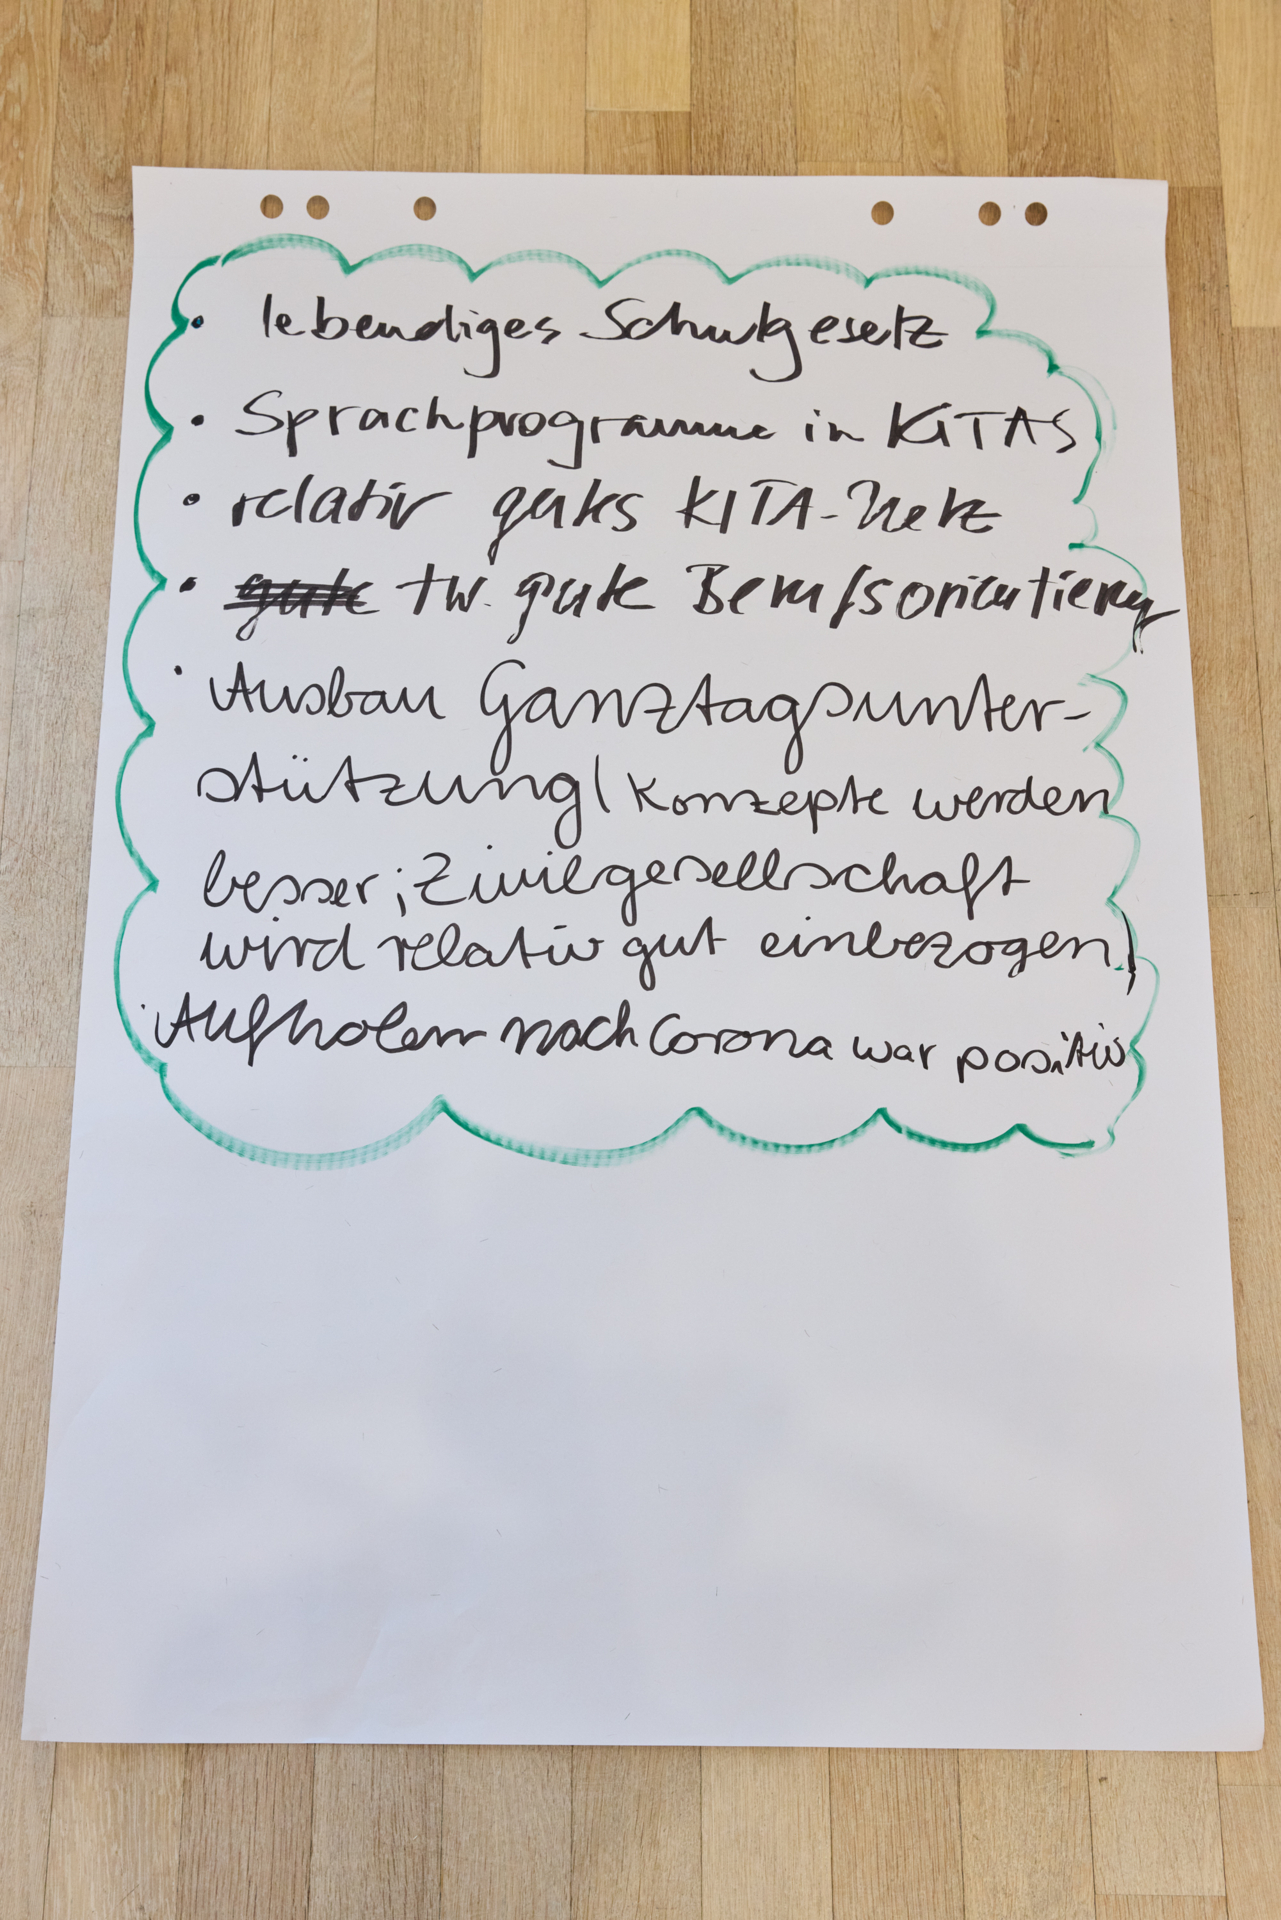 • lebendiges Schulgesetz
• Sprachprogramme in KiTAS
• relativ gutes KITA-Netz
• gute tw. gute Berufsorientierung
• Ausbau Ganztagsunter-
stützung (Konzepte werden
besser; Zivilgesellschaft
wird relativ gut einbezogen)
• Aufholen nach Corona war positiv